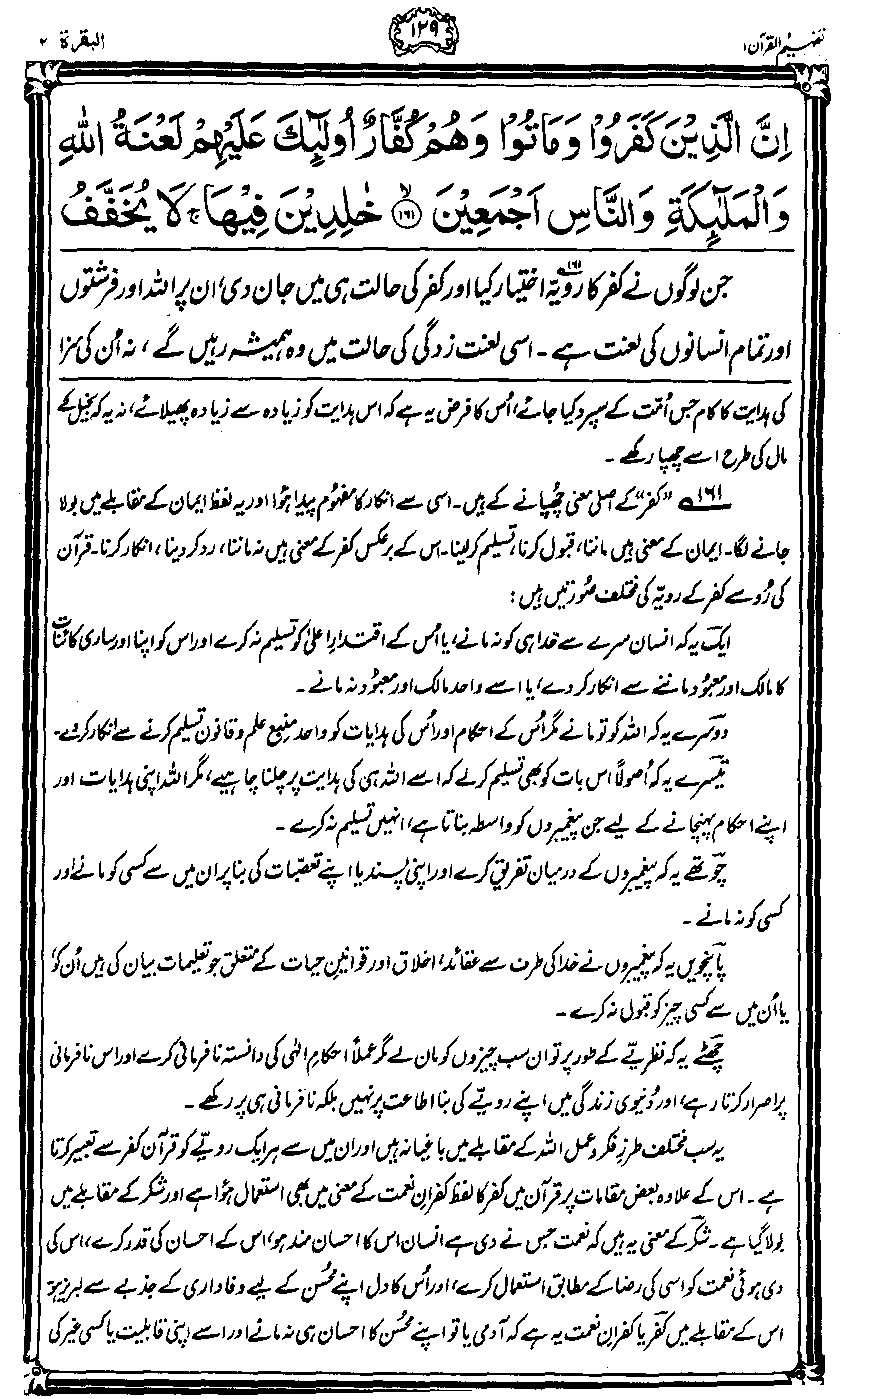 تفہیم القرآن ۱
۱۲۹
البقرۃ ۲
اِنَّ الَّذِیْنَ کَفَرُوْا وَمَاتُوْا وَھُمْ کُفَّارٌ اُولٰٓئِکَ عَلَیْہِمْ لَعْنَۃُ اللّٰہِ
وَالْمَلٰٓئِکَۃِ وَالنَّاسِ اَجْمَعِیْنَ ۱۶۱ۙ خٰلِدِیْنَ فِیْھَا ۚ لَا یُخَفَّفُ
جن لوگوں نے کفر کا رویّہ ۱۶۱؎ اختیار کیا اور کفر کی حالت ہی میں جان دی، ان پر اللہ اور فرشتوں
اور تمام انسانوں کی لعنت ہے۔ اسی لعنت زدگی کی حالت میں وہ ہمیشہ رہیں گے، نہ اُن کی سزا
کی ہدایت کا کام جس اُمّت کے سپرد کیا جائے، اُس کا فرض یہ ہے کہ اس ہدایت کو زیادہ سے زیادہ پھیلائے، نہ یہ کہ بخیل کے
مال کی طرح اسے چھپا رکھے۔
۱۶۱؎ ”کفر“ کے اصلی معنی چُھپانے کے ہیں۔ اسی سے انکار کا مفہُوم پیدا ہُوا اور یہ لفظ ایمان کے مقابلے میں بولا
جانے لگا۔ ایمان کے معنی ہیں ماننا، قبول کرنا، تسلیم کر لینا۔ اس کے برعکس کفر کے معنی ہیں نہ ماننا، رد کر دینا، انکار کرنا۔ قرآن
کی رُو سے کفر کے رویّہ کی مختلف صُورتیں ہیں:
ایک یہ کہ انسان سرے سے خدا ہی کو نہ مانے، یا اُس کے اقتدارِ اعلیٰ کو تسلیم نہ کرے اور اس کو اپنا اور ساری کائنات
کا مالک اور معبُود ماننے سے انکار کر دے، یا اسے واحد مالک اور معبُود نہ مانے۔
دوسرے یہ کہ اللہ کو تو مانے مگر اُس کے احکام اور اُس کی ہدایات کو واحد منبعِ علم و قانون تسلیم کرنے سے انکار کر دے۔
تیسرے یہ کہ اُصولاً اس بات کو بھی تسلیم کر لے کہ اسے اللہ ہی کی ہدایت پر چلنا چاہیے، مگر اللہ اپنی ہدایات اور
اپنے احکام پہنچانے کے لیے جن پیغمبروں کو واسطہ بناتا ہے، انہیں تسلیم نہ کرے۔
چوتھے یہ کہ پیغمبروں کے درمیان تفریق کرے اور اپنی پسند یا اپنے تعصّبات کی بنا پر ان میں سے کسی کو مانے اور
کسی کو نہ مانے۔
پانچویں یہ کہ پیغمبروں نے خدا کی طرف سے عقائد، اخلاق اور قوانینِ حیات کے متعلق جو تعلیمات بیان کی ہیں اُن کو
یا اُن میں سے کسی چیز کو قبول نہ کرے۔
چھٹے یہ کہ نظریے کے طور پر تو ان سب چیزوں کو مان لے مگر عملاً احکامِ الٰہی کی دانستہ نافرمانی کرے اور اس نافرمانی
پر اصرار کرتا رہے، اور دُنیوی زندگی میں اپنے رویّے کی بنا اطاعت پر نہیں بلکہ نافرمانی ہی پر رکھے۔
یہ سب مختلف طرزِ فکر و عمل اللہ کے مقابلے میں باغیانہ ہیں اور ان میں سے ہر ایک رویّے کو قرآن کفر سے تعبیر کرتا
ہے۔ اس کے علاوہ بعض مقامات پر قرآن میں کفر کا لفظ کفرانِ نعمت کے معنی میں بھی استعمال ہُوا ہے اور شکر کے مقابلے میں
بولا گیا ہے۔ شکر کے معنی یہ ہیں کہ نعمت جس نے دی ہے انسان اس کا احسان مند ہو، اس کے احسان کی قدر کرے، اس کی
دی ہوئی نعمت کو اسی کی رضا کے مطابق استعمال کرے، اور اُس کا دل اپنے محُسن کے لیے وفاداری کے جذبے سے لبریز ہو
اس کے مقابلے میں کفر یا کفرانِ نعمت یہ ہے کہ آدمی یا تو اپنے محُسن کا احسان ہی نہ مانے اور اسے اپنی قابلیت یا کسی غیر کی